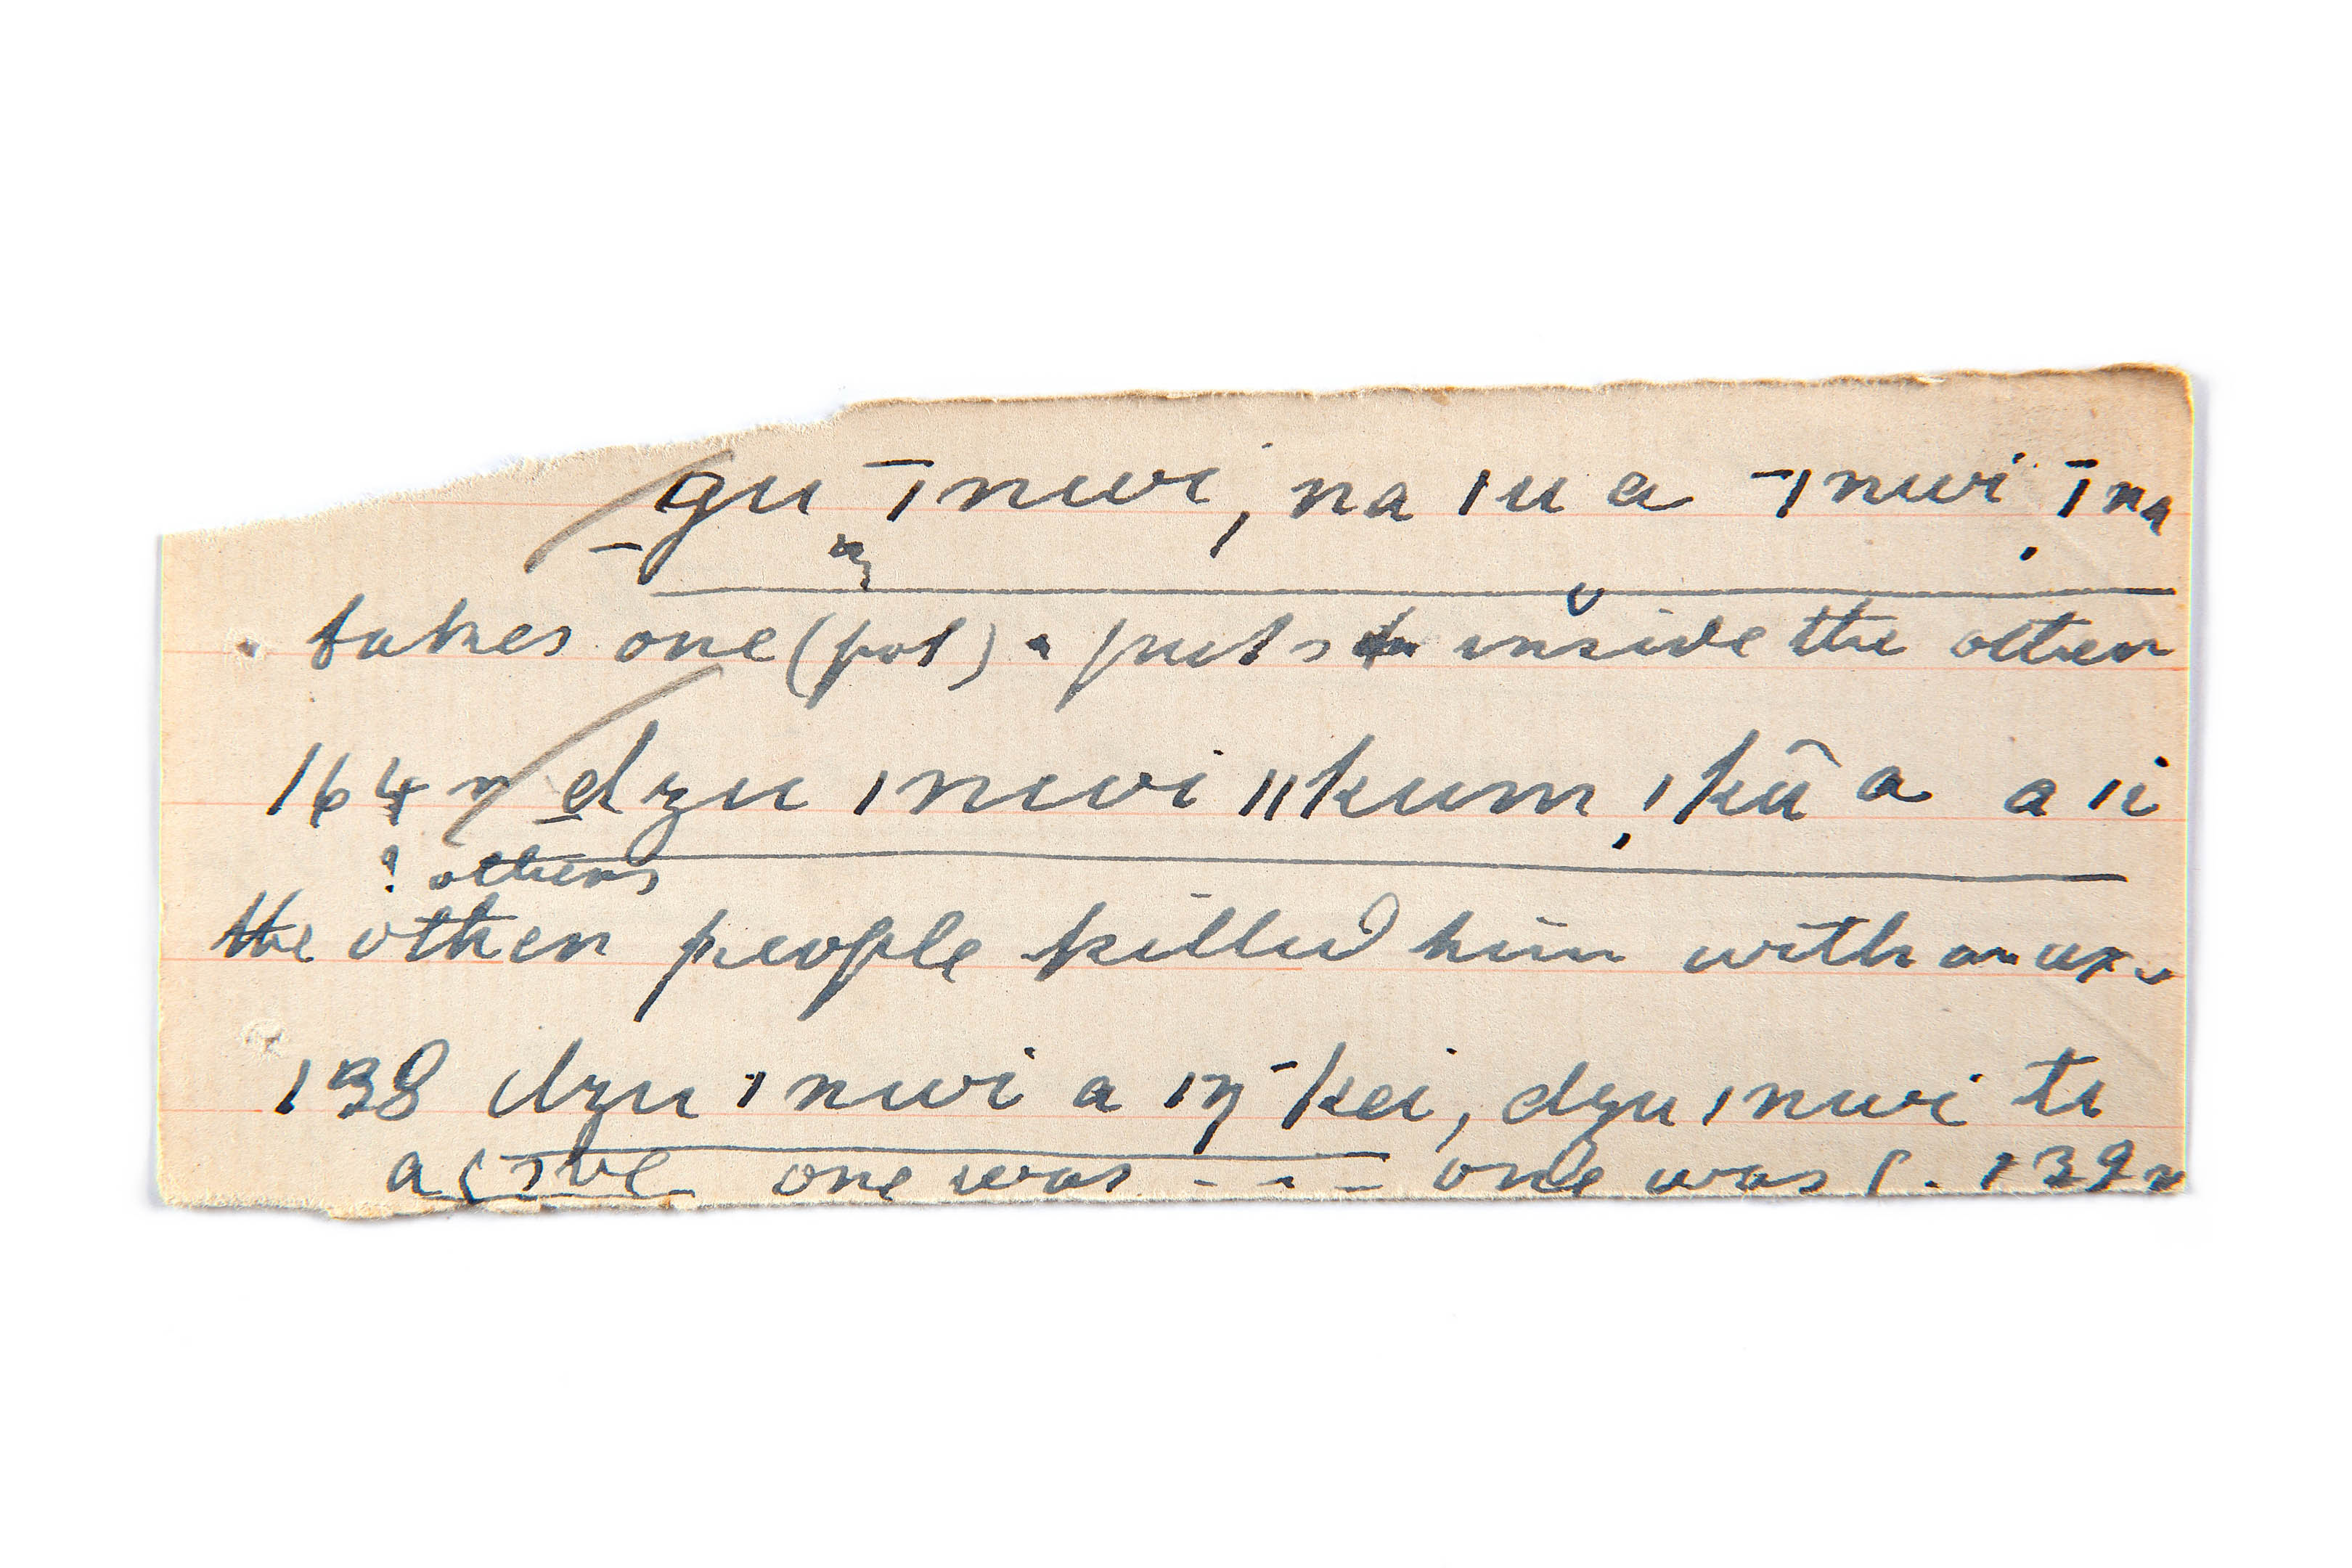 gu ˉǀnwi, na ǀu a ˉǀnwi ˉǀna
takes one (pot) puts inside the other
164 dzu ǀnwi ǁkum, ǃkũ a a ǀi
? others
the other people killed him with an axe
138 dzu ǀnwi a ǀŋ ˉkei, dzu ǀnwi ti
one was - - - one was 139